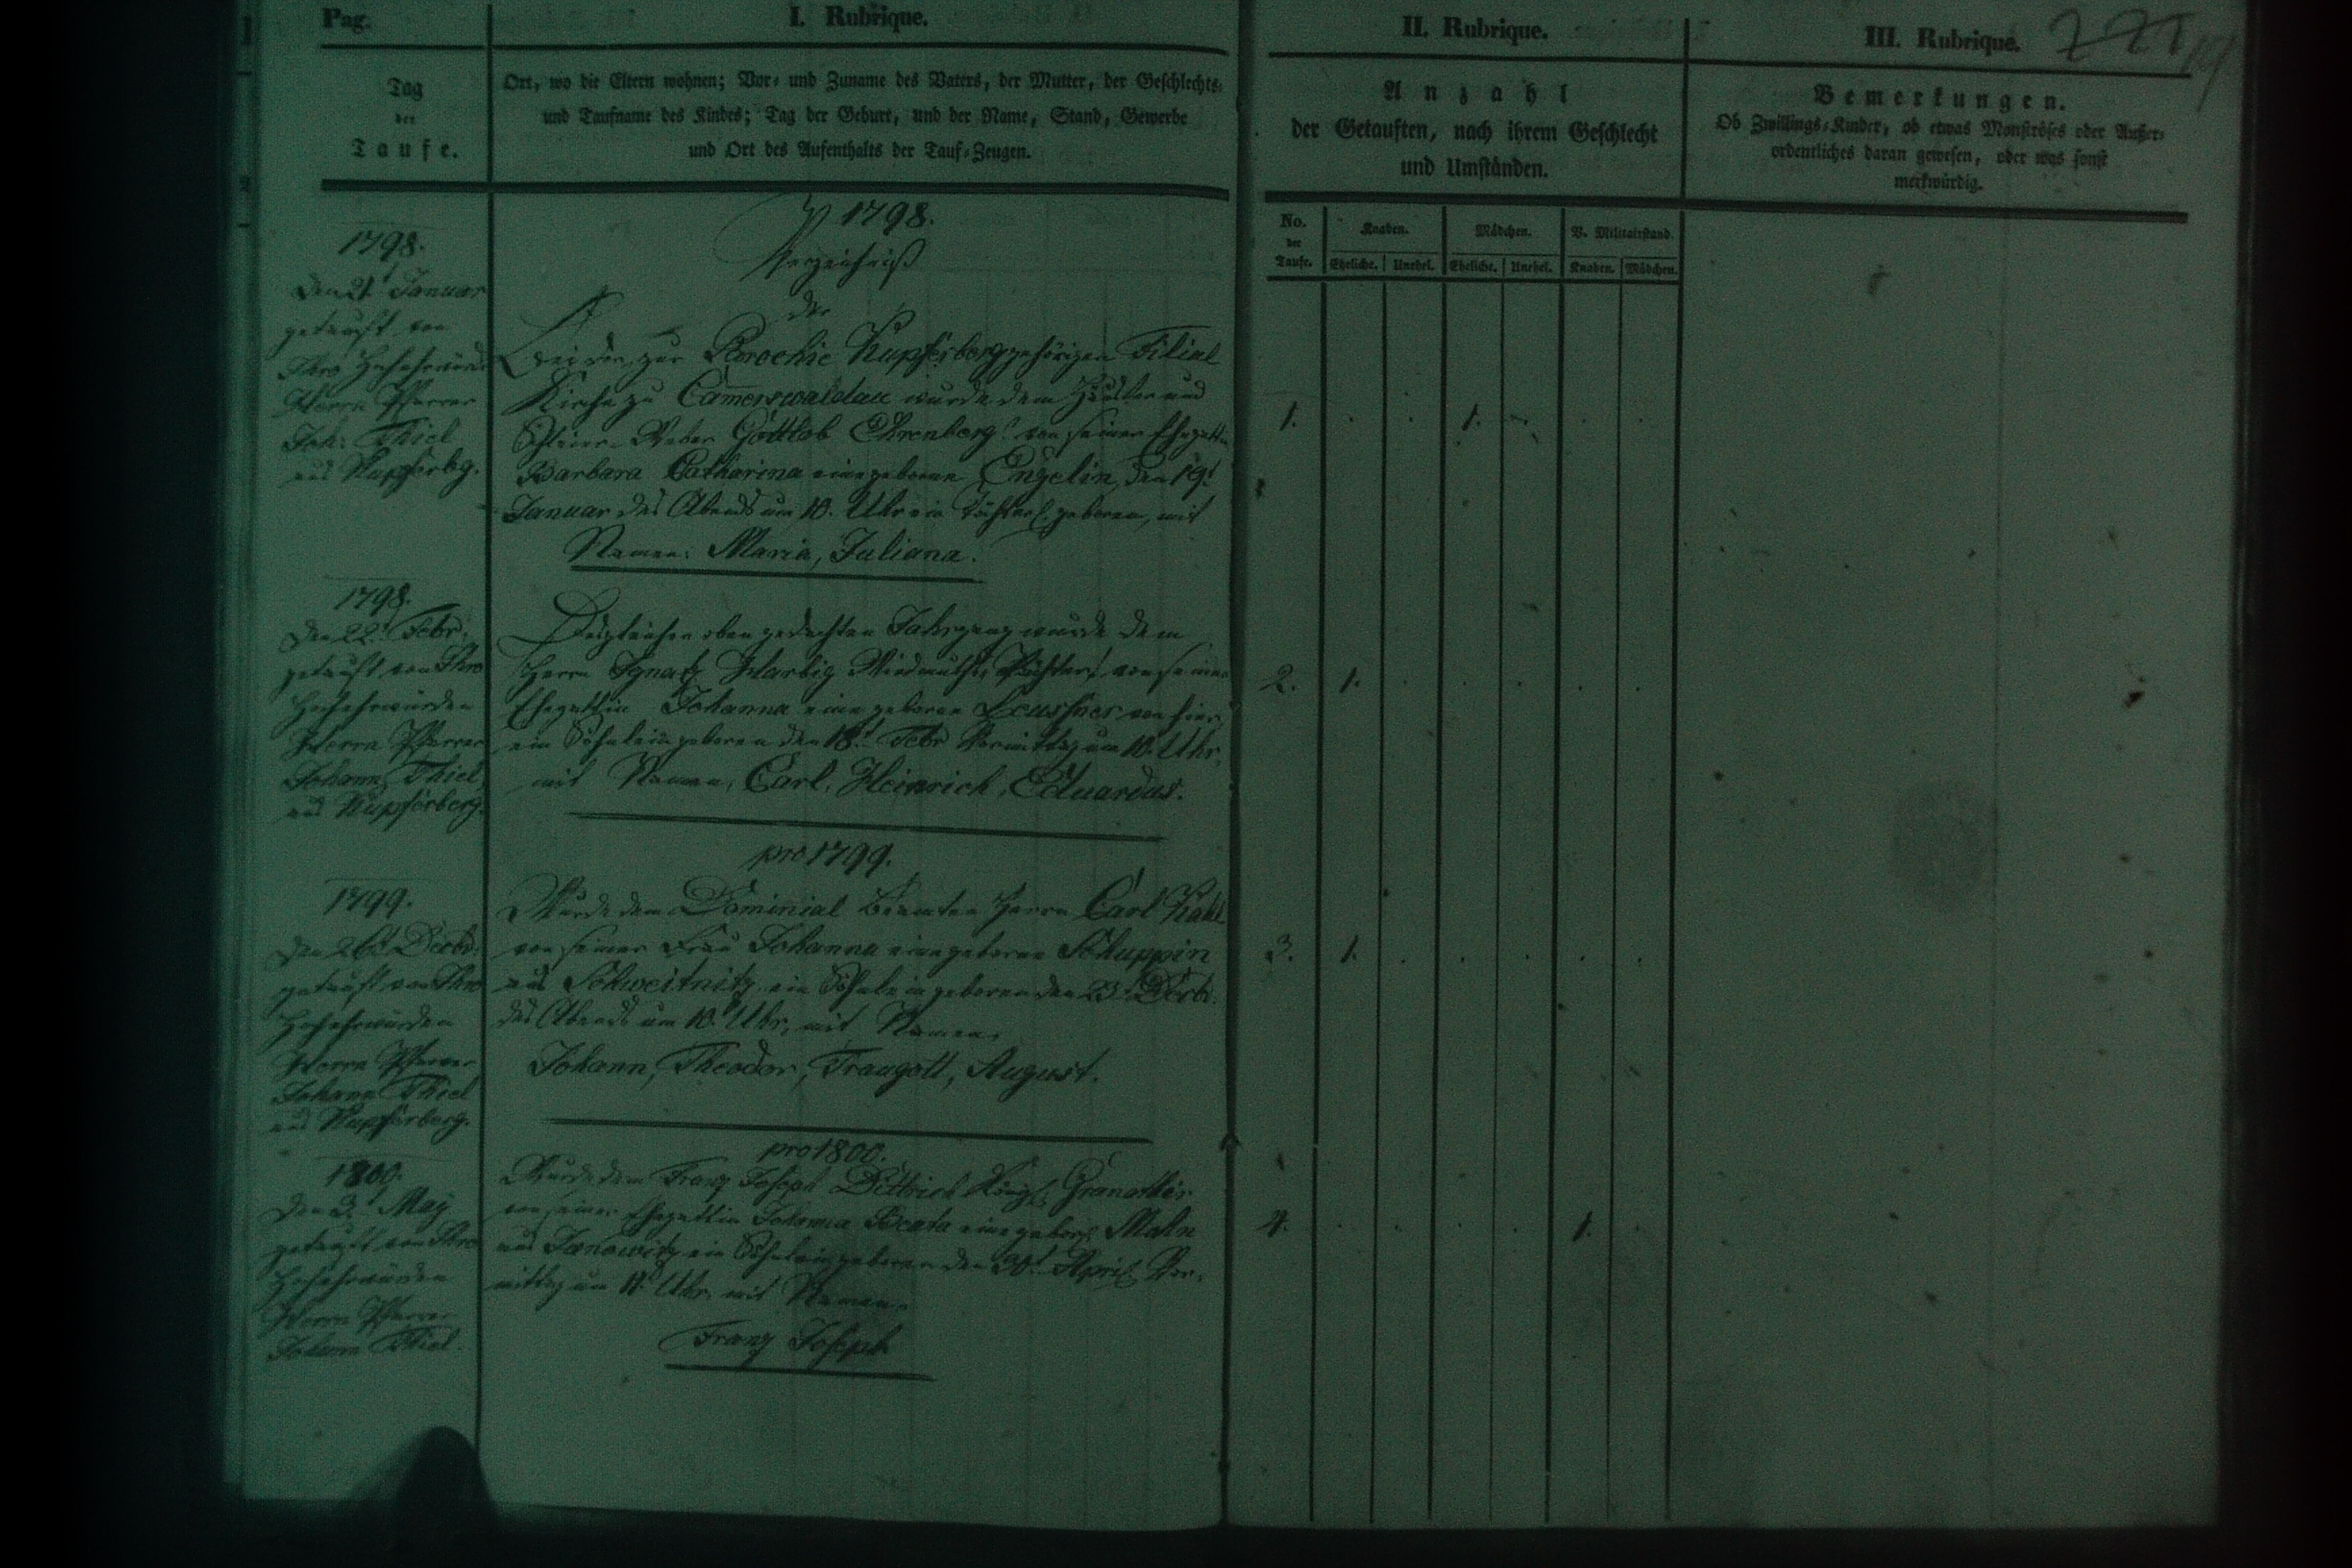 Pag.
I. Rubrique.
Tag
der
Taufe.
Ort, wo die Eltern wohnen; Vor- und Zuname des Vaters, der Mutter, der Geschlechts-
und Taufname des Kindes; Tag der Geburt, und der Name, Stand, Gewerbe
und Ort des Aufenthalts der Tauf-Zeugen.
1798.
Verzeichniß
der
1798.
den 21t Januar
getauft von
Ihro Hochehrwürd.
Herrn Pfarrer
Joh: Thiel
aus Kupferbg.
Bei der zur Parochie Kupferberg gehörigen Filial
Kirche zu Cam̅erswaldau wurde dem Häusler und
Schleier-Weber Gottlob Ehrenberg von seiner Ehegattin
Barbara Catharina eine geborne Engelin, den 19t
Januar des Abends um 10. Uhr ein Töchterl. geboren, mit
Namen: Maria, Juliana.
1798.
den 22t Febr:
getauft von Ihro
Hochehrwürden
Herrn Pfarrer
Johann Thiel,
aus Kupferberg.
Desgleichen oben gedachten Jahrgang wurde dem
Herrn Ignatz Harbig von seiner
Ehegattin Johanna eine geborne Leussner von hier,
ein Söhnlein geboren den 18t Febr Vormittag um 10. Uhr,
mit Namen, Carl, Heinrich, Eduardus.
pro 1799.
1799.
den 26t Decbr:
getauft von Ihro
Hochehrwürden
Herrn Pfarrer
Johann Thiel
aus Kupferberg.
Wurde dem Dominial Beamten Herrn Carl
von seiner Frau Johanna eine geborne Schuppin
aus ein Söhnlein geboren den 23t Decbr:
des Abends um 10. Uhr, mit Namen,
Johann, Theodor, Traugott, August.
pro 1800.
1800.
den 3t May
getauft von Ihro
Hochehrwürden
Herrn Pfarrer
Johann Thiel.
Wurde dem Franz Joseph Dittrich Königl. Granathier
von seiner Ehegattin Johanna Beata eine geborn
aus Janowitz ein Söhnlein geboren den 30t April Vor-
mittag um Uhr, mit Namen,
Franz Joseph
II. Rubrique.
Anzahl
der Getauften, nach ihrem Geschlecht
und Umständen.
III. Rubrique.
Bemerkungen.
Ob Zwillings-Kinder, ob etwas Monströses oder Außer-
ordentliches daran gewesen, oder was sonst
merkwürdig.
No.
der
Taufe.
Knaben.
Mädchen.
V. Militairstand.
Eheliche. Unehel. Eheliche. Unehel. Knaben. Mädchen.
1. . . 1. . . .
2. 1. . . . . .
3. 1. . . . . .
4. . . . . 1. .